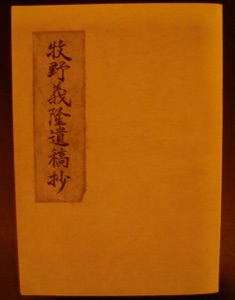 牧野義隆遺稿抄